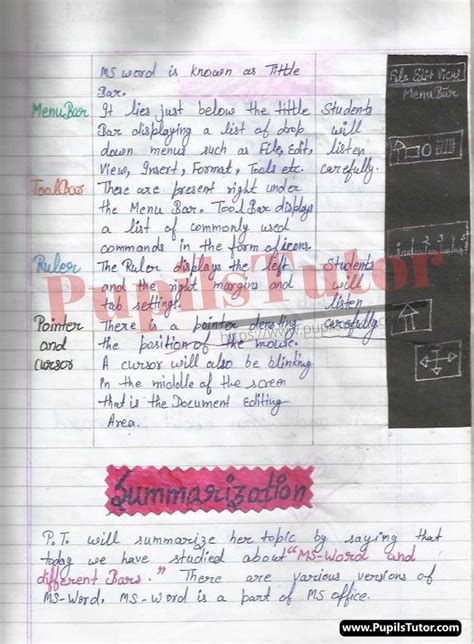 MS word is known as Tittle
Bar.
Menu Bar It lies just below the tittle Students
Bar displaying a list of drop will
down menus such as File, Edit, listen
View, Insert, Format, Tools etc. carefully.
ToolBar These are present right under
the Menu Bar. Tool Bar displays
a list of commonly used
commands in the form of icons.
Ruler The Ruler displays the left Students
and the right margins and will
tab settings. listen
Pointer There is a pointer denoting carefully.
and the position of the mouse.
cursor A cursor will also be blinking
in the middle of the screen
that is the Document Editing
Area.
File Edit View
Menu Bar
PupilsTutor
Summarization
P.T. will summarize her topic by saying that
today we have studied about "MS-Word and
different Bars." There are various versions of
MS-Word. MS-Word is a part of MS office.
www.PupilsTutor.Com